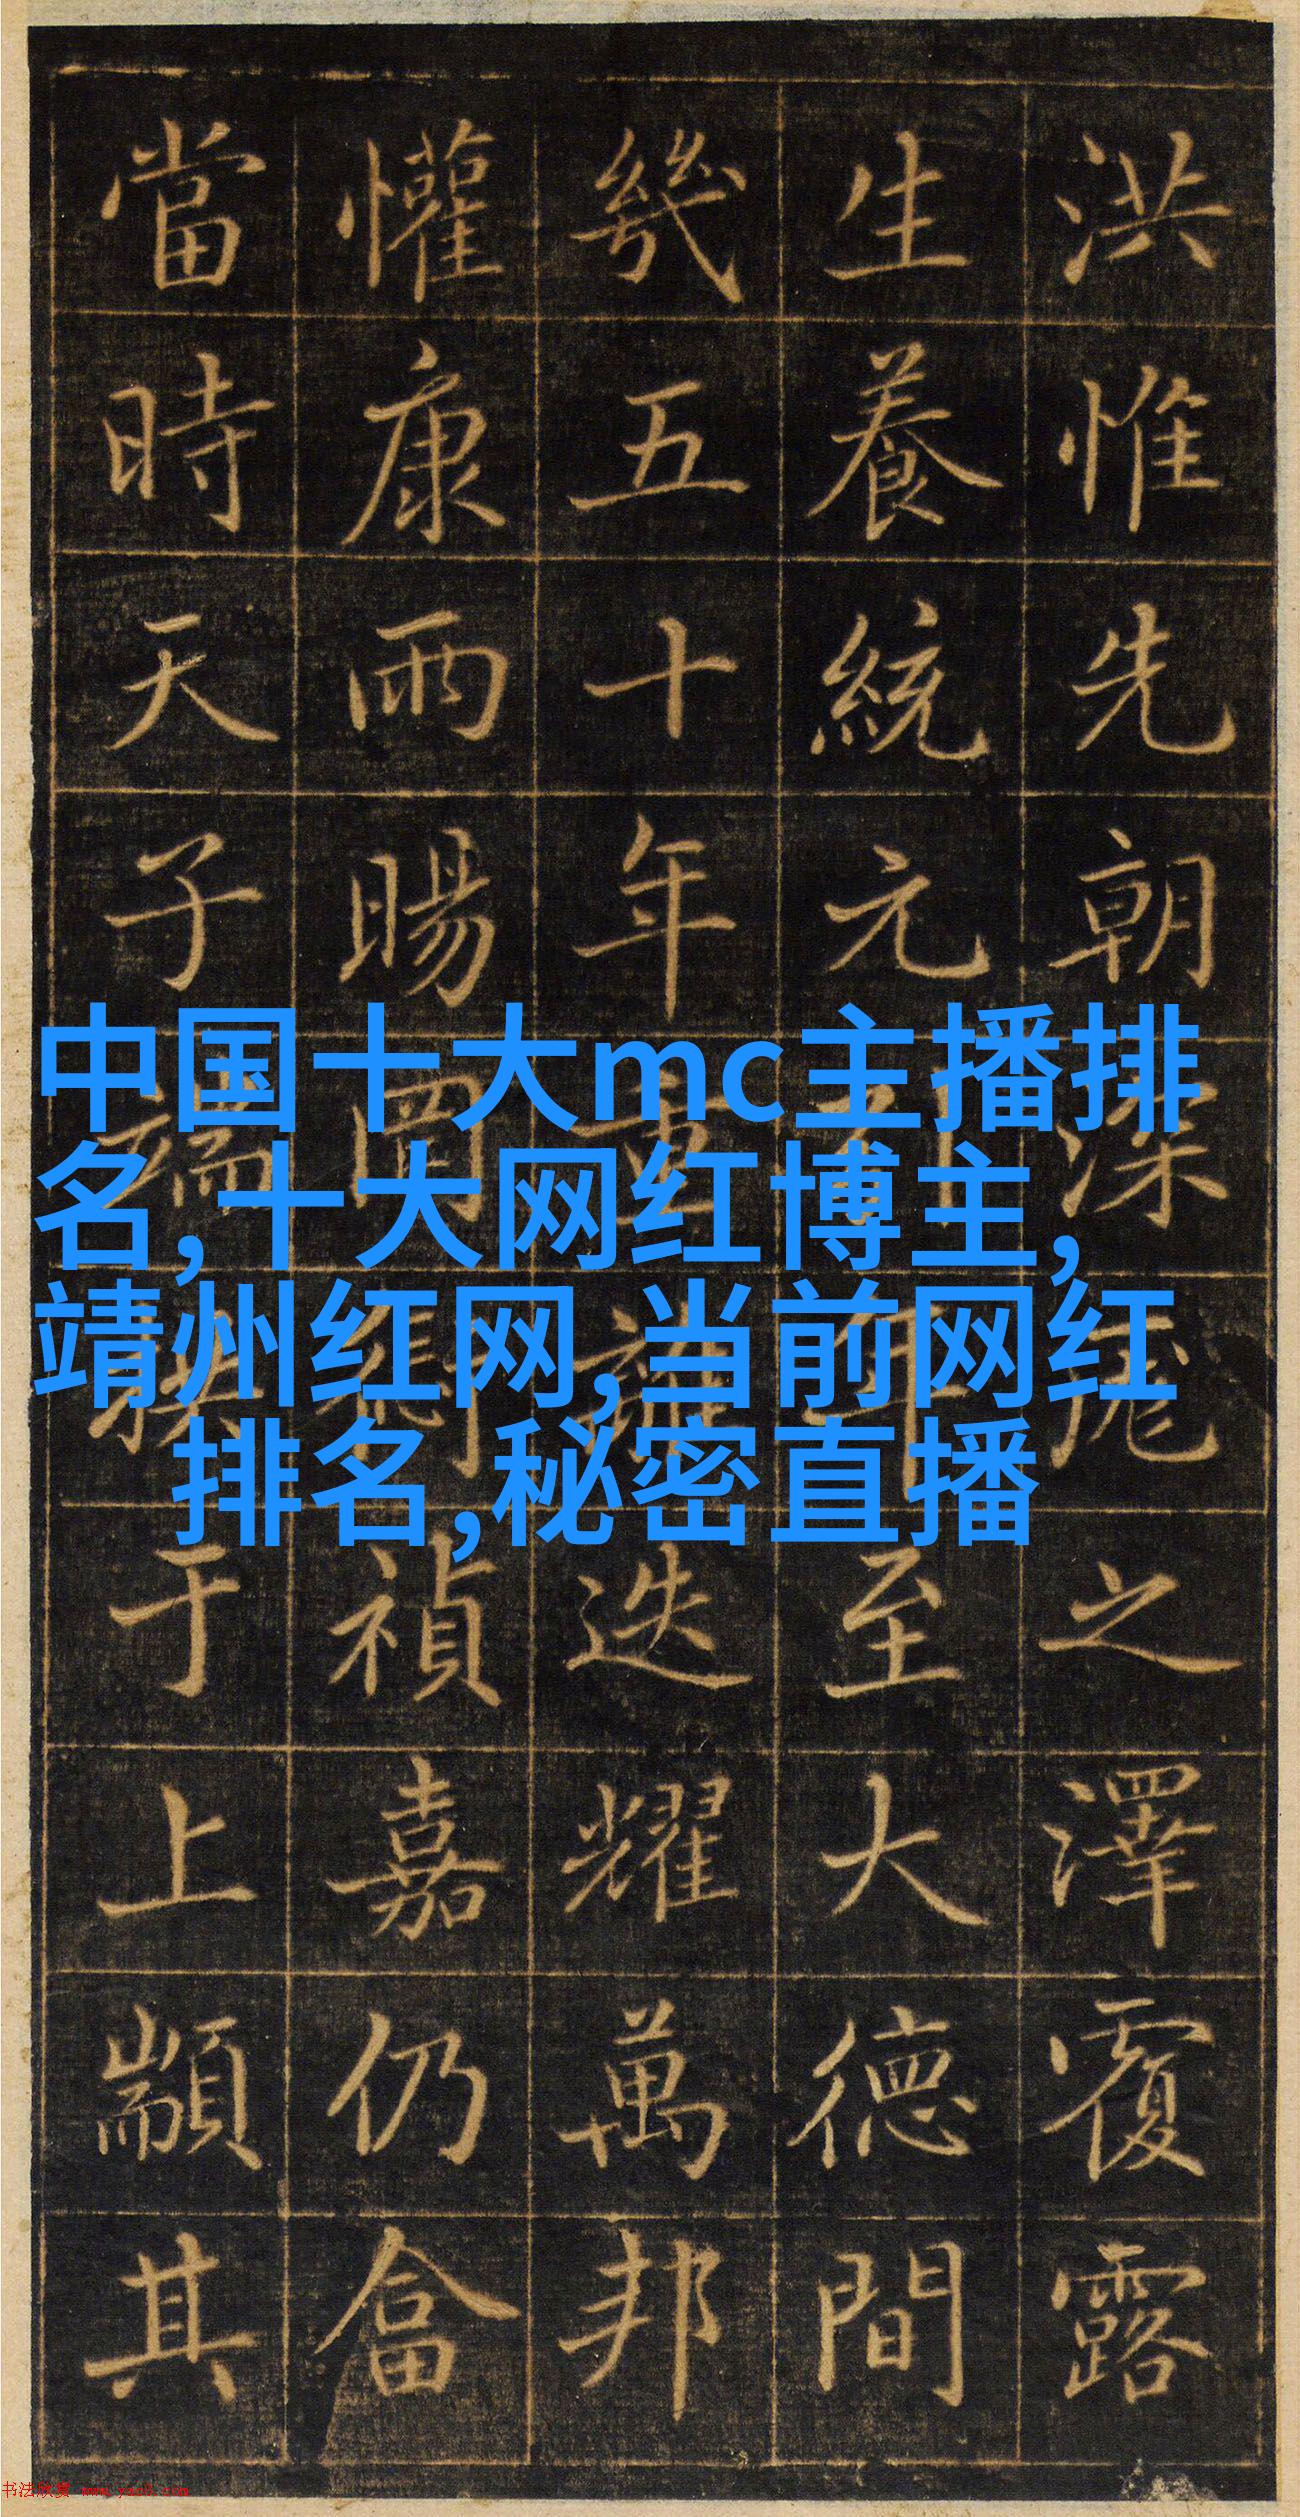 洪惟先朝深之澤覆露
生養統元年至大德間
幾五十年重迭耀萬邦
懽康雨暘罔愆禎嘉仍畣
當時天子端拱于上顒其
中国十大mc主播排
名,十大网红博主,
靖州红网,当前网红
排名,秘密直播
书法欣赏 www.yac8.com